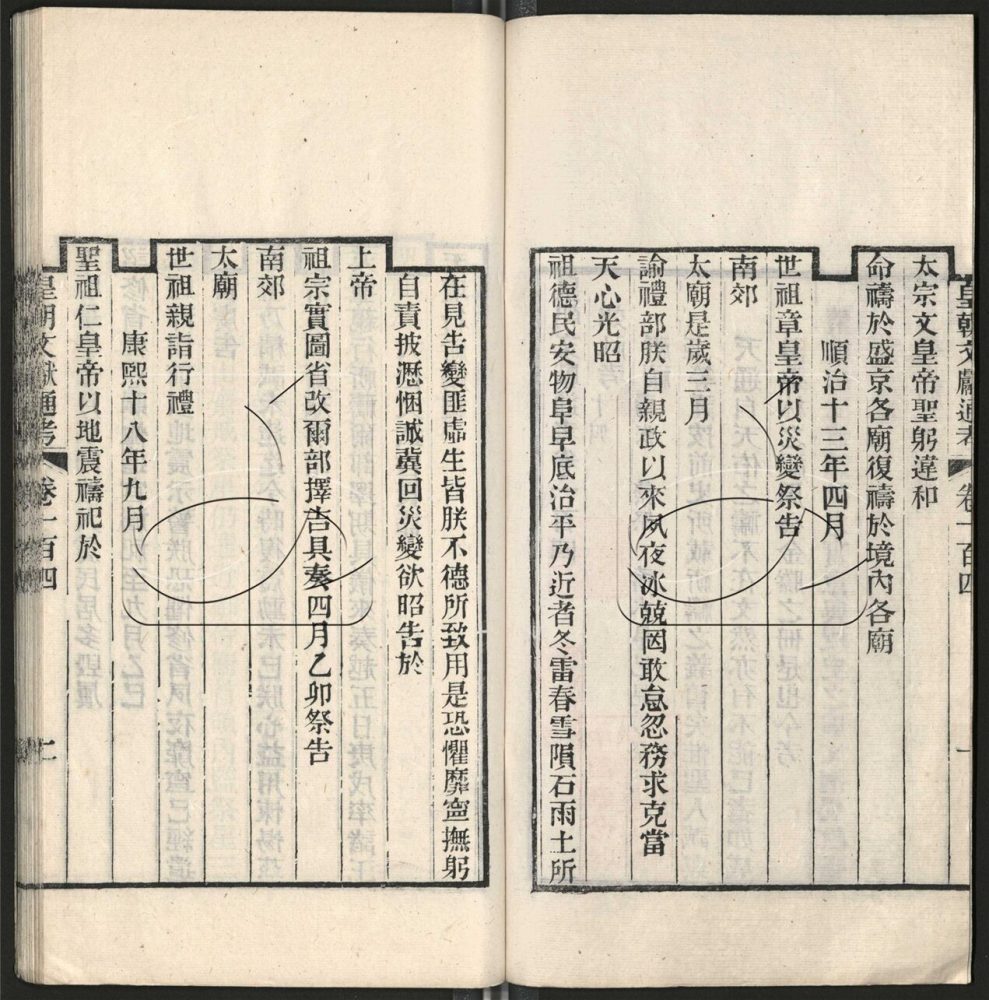 皇朝文獻通考 卷一百四 一
太宗文皇帝聖躬違和
命禱於盛京各廟復禱於境內各廟
順治十三年四月
世祖章皇帝以災變祭告
南郊
太廟是歲三月
諭禮部朕自親政以來夙夜冰兢罔敢怠忽務求克當
天心光昭
祖德民安物阜早底治平乃近者冬雷春雪隕石雨土所
在見告變匪虛生皆朕不德所致用是恐懼靡寧撫躬
自責披瀝悃誠冀回災變欲昭告於
上帝
祖宗實圖省改爾部擇吉具奏四月乙卯祭告
南郊
太廟
世祖親詣行禮
康熙十八年九月
聖祖仁皇帝以地震禱祀於
皇朝文獻通考 卷一百四 二